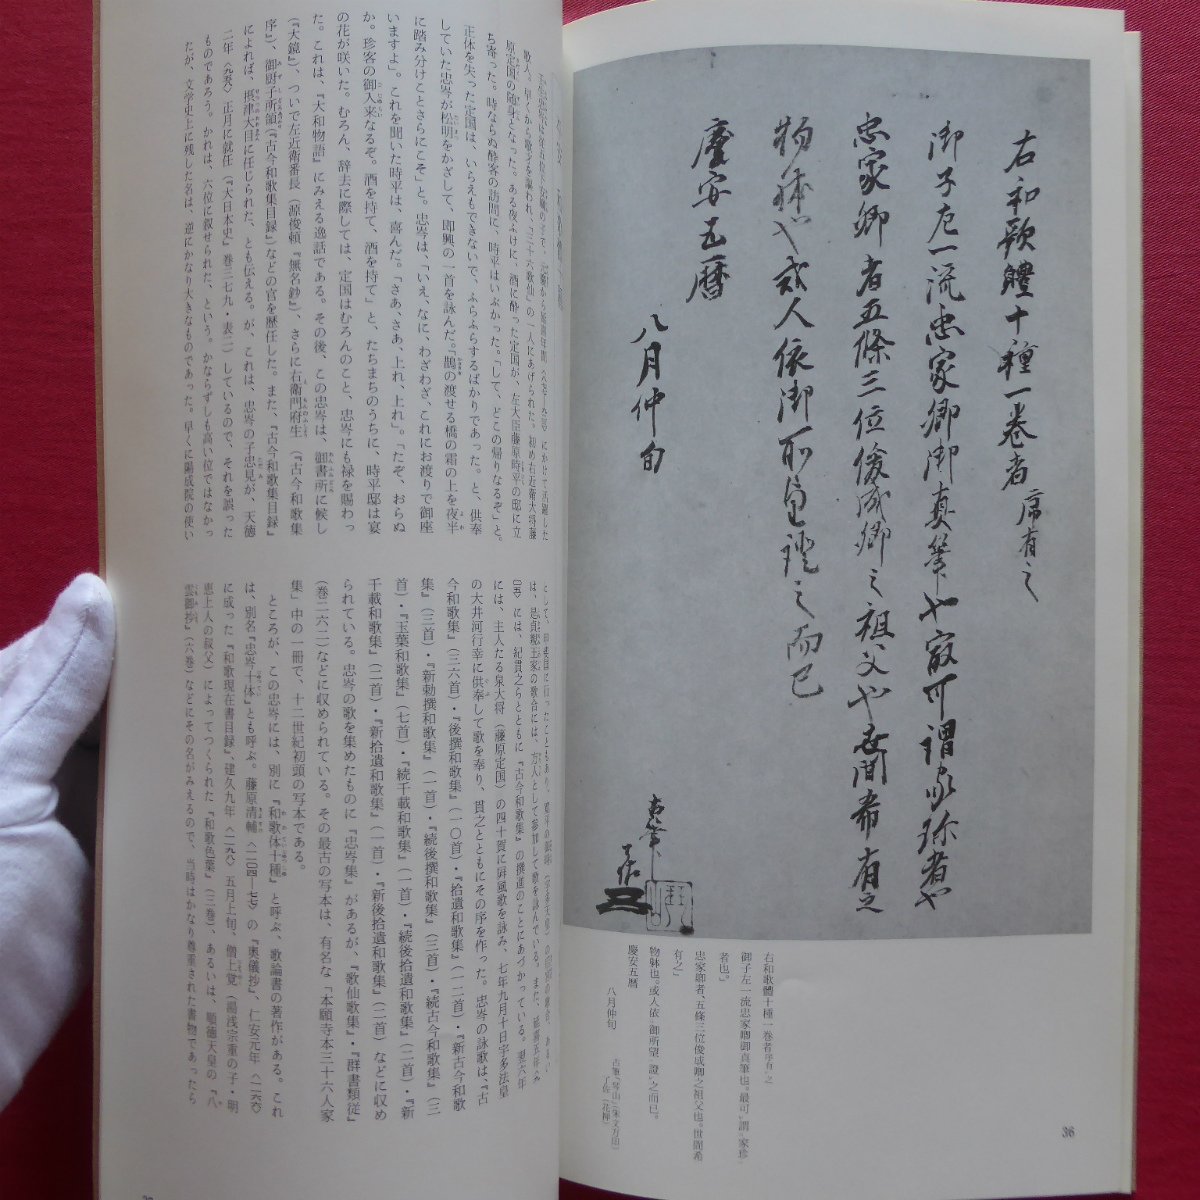 右和歌體十種一巻者 序有之
御子左一流忠家卿御真筆也最可謂家珍者也
忠家卿者五條三位俊成卿之祖父也世間希有之
物躰也或人依御所望證之而已
慶安五曆
八月仲旬
古筆
了佐
琴山
右和歌體十種一巻者序有之
御子左一流忠家卿御真筆也。最可謂家珍
者也。
忠家卿者、五條三位俊成卿之祖父也。世間希
有之
物躰也。或人依御所望證之而已。
慶安五曆
八月仲旬
古筆(「琴山」朱文方印)
了佐(花押)
36
歌人。早くから歌才を謳われ、「三十六歌仙」の一人にあげられた。初め右近衛大将藤
原定国の随身となった。ある夜ふけに、酒に酔った定国が、左大臣藤原時平の邸に立
ち寄った。時ならぬ酔客の訪問に、時平はいぶかった。「して、どこの帰りなるぞ」と。
正体を失った定国は、いらえもできないで、ふらふらするばかりであった。と、供奉
していた忠岑が松明をかざして、即興の一首を詠んだ。「鵲の渡せる橋の霜の上を夜半
に踏み分けことさらにこそ」と。忠岑は、「いえ、なに、わざわざ、これにお渡りで御座
いますよ」。これを聞いた時平は、喜んだ。「さあ、さあ、上れ、上れ」。「たぞ、おらぬ
か。珍客の御入来なるぞ。酒を持て、酒を持て」と、たちまちのうちに、時平邸は宴
の花が咲いた。むろん、辞去に際しては、定国はむろんのこと、忠岑にも禄を賜わっ
た。これは、『大和物語』にみえる逸話である。その後、この忠岑は、御書所に候し
(『大鏡』)、ついで左近衛番長(源俊頼『無名鈔』)、さらに右衛門府生(『古今和歌集
序』)、御厨子所領(『古今和歌集目録』)などの官を歴任した。また、『古今和歌集目録』
によれば、摂津大目に任じられた、とも伝える。が、これは、忠岑の子忠見が、天徳
二年〈九五八〉正月に就任(『大日本史』巻三七九・表二)しているので、それを誤った
ものであろう。かれは、六位に叙せられた、という。かならずしも高い位ではなかっ
たが、文学史上に残した名は、逆にかなり大きなものであった。早くに陽成院の使い
には、紀貫之らとともに『古今和歌集』の撰進のことにあづかっている。翌六年
には、主人たる泉大将(藤原定国)の四十賀に屛風歌を詠み、七年九月十日宇多法皇
の大井河行幸に供奉して歌を奉り、貫之とともにその序を作った。忠岑の詠歌は、『古
今和歌集』(三六首)・『後撰和歌集』(一〇首)・『拾遺和歌集』(一二首)・『新古今和歌
集』(三首)・『新勅撰和歌集』(一首)・『続後撰和歌集』(三首)・『続古今和歌集』(三
首)・『玉葉和歌集』(七首)・『続千載和歌集』(一首)・『続後拾遺和歌集』(二首)・『新
千載和歌集』(二首)・『新拾遺和歌集』(一首)・『新後拾遺和歌集』(二首)などに収め
られている。忠岑の歌を集めたものに『忠岑集』があるが、『歌仙歌集』・『群書類従』
(巻二六二)などに収められている。その最古の写本は、有名な「本願寺本三十六人家
集」中の一冊で、十二世紀初頭の写本である。
ところが、この忠岑には、別に『和歌体十種』と呼ぶ、歌論書の著作がある。これ
は、別名『忠岑十体』とも呼ぶ。藤原清輔〈一一〇四-七七〉の『奥儀抄』、仁安元年〈一一六六〉
に成った『和歌現在書目録』、建久九年〈一一九八〉五月上旬、僧上覚(湯浅宗重の子・明
恵上人の叔父)によってつくられた『和歌色葉』(三巻)、あるいは、順徳天皇の『八
雲御抄』(六巻)などにその名がみえるので、当時はかなり尊重された書物であったら